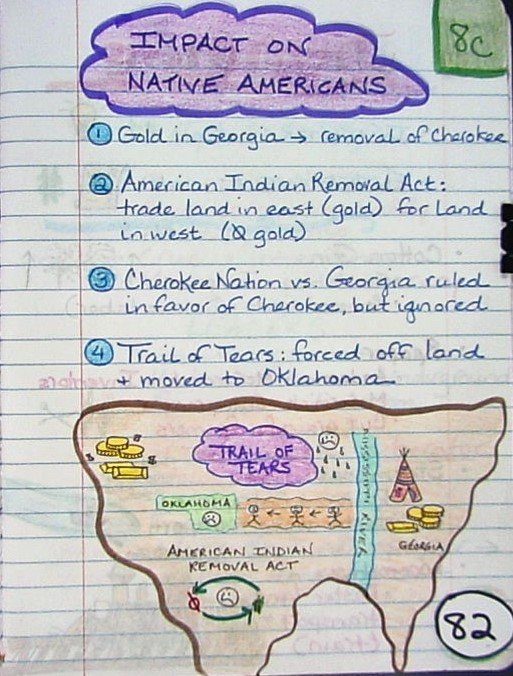 IMPACT ON
NATIVE AMERICANS
8C
1 Gold in Georgia → removal of Cherokee
2 American Indian Removal Act:
trade land in east (gold) for Land
in west (Ø gold)
3 Cherokee Nation vs. Georgia ruled
in favor of Cherokee, but ignored
4 Trail of Tears: forced off land
+ moved to Oklahoma
TRAIL OF
TEARS
MISSISSIPPI RIVER
OKLAHOMA
GEORGIA
AMERICAN INDIAN
REMOVAL ACT
82